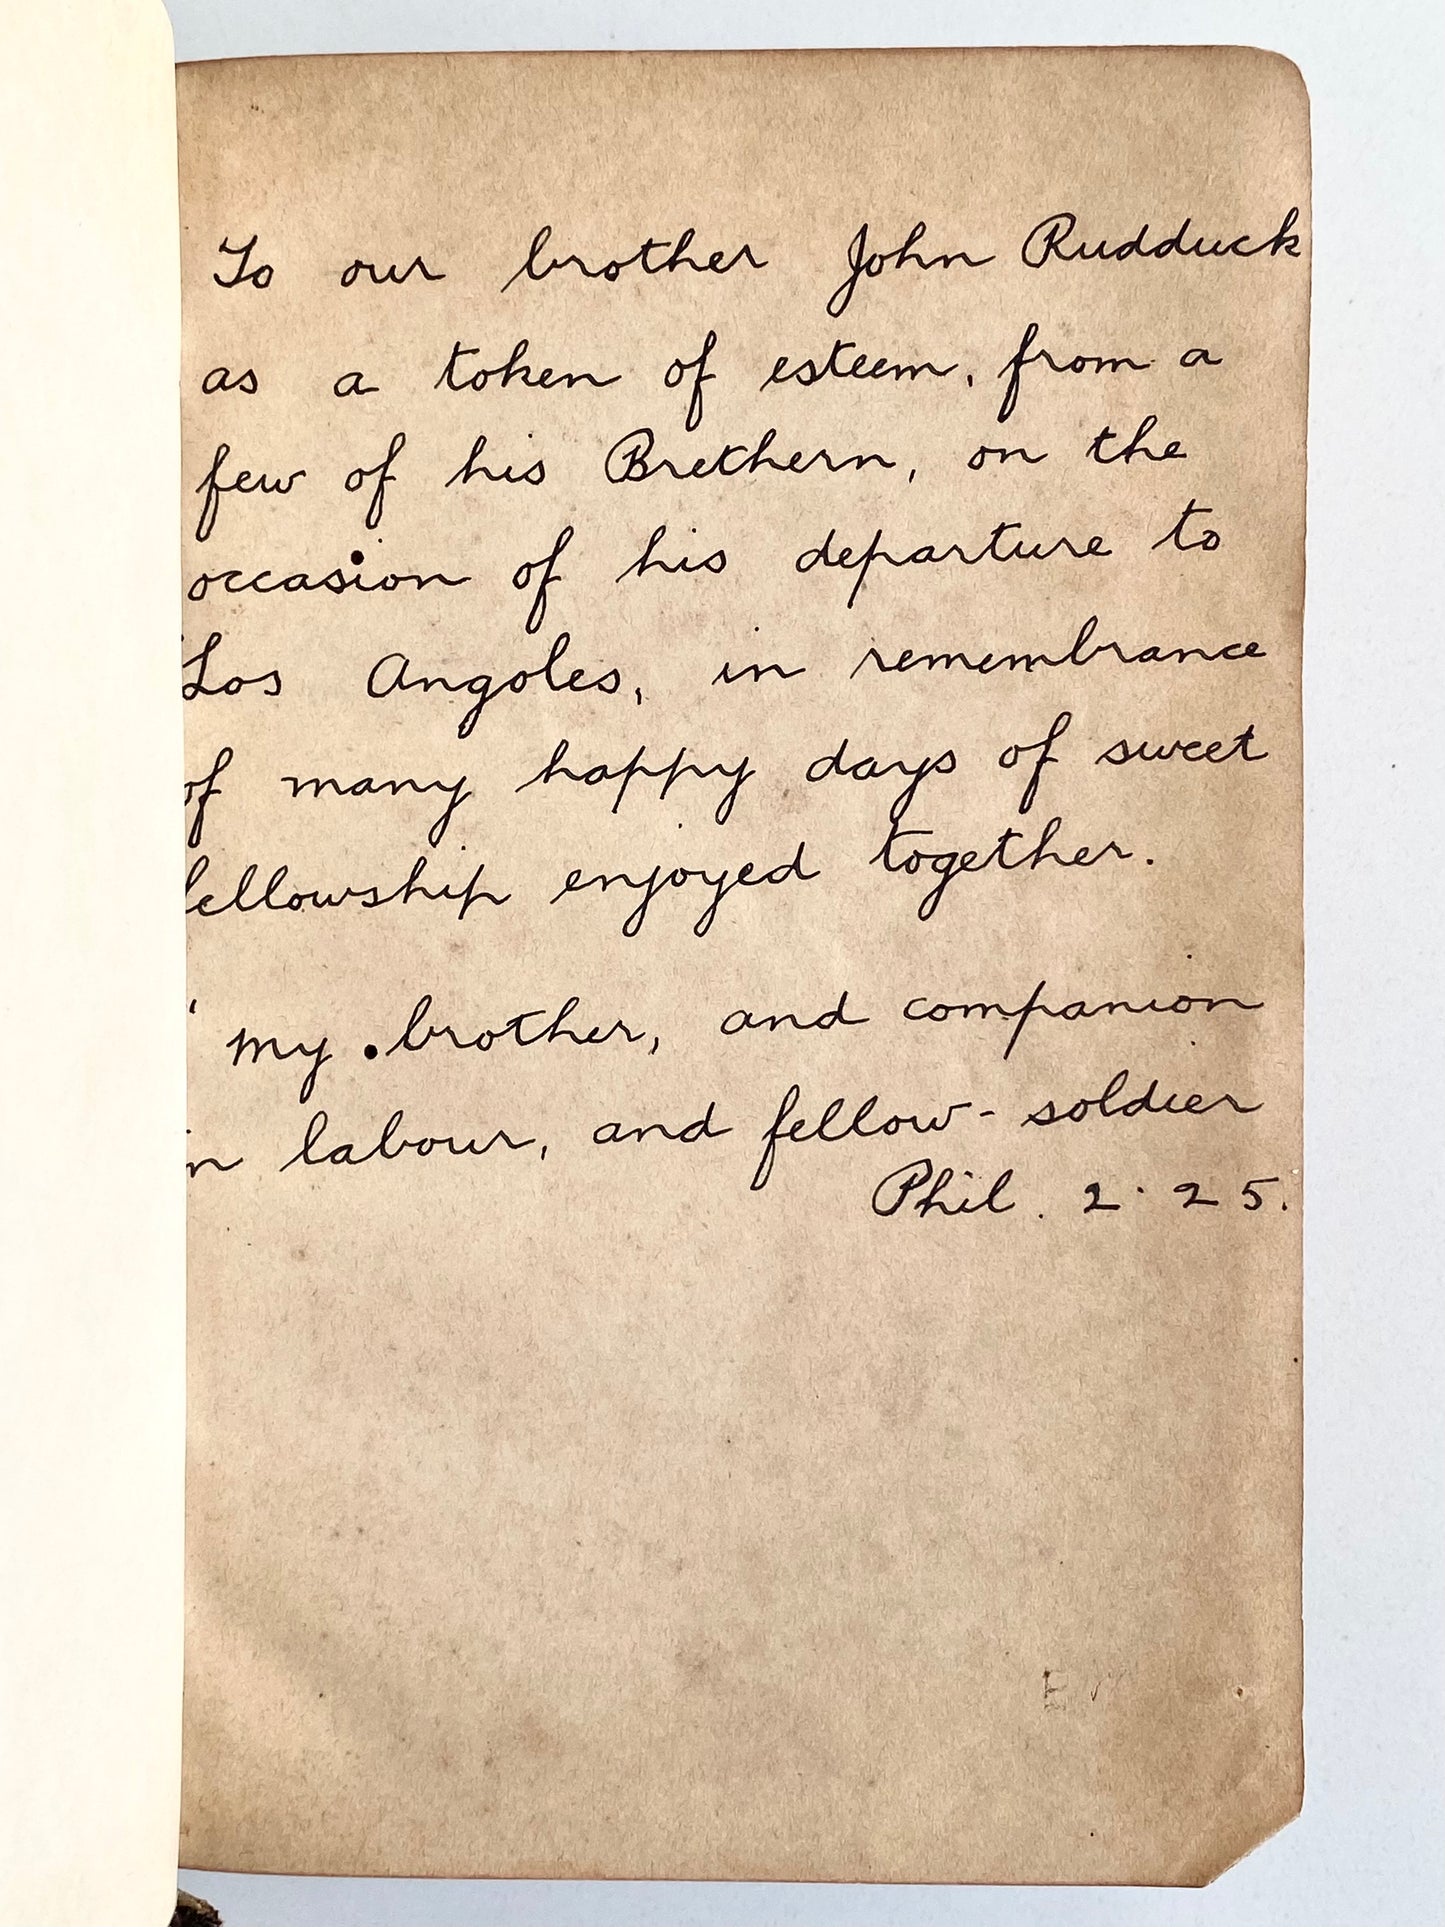 To our brother John Rudduck
as a token of esteem, from a
few of his Brethern, on the
occasion of his departure to
Los Angoles, in remembrance
of many happy days of sweet
fellowship enjoyed together.
' my brother, and companion
in labour, and fellow-soldier
Phil. 2. 25.